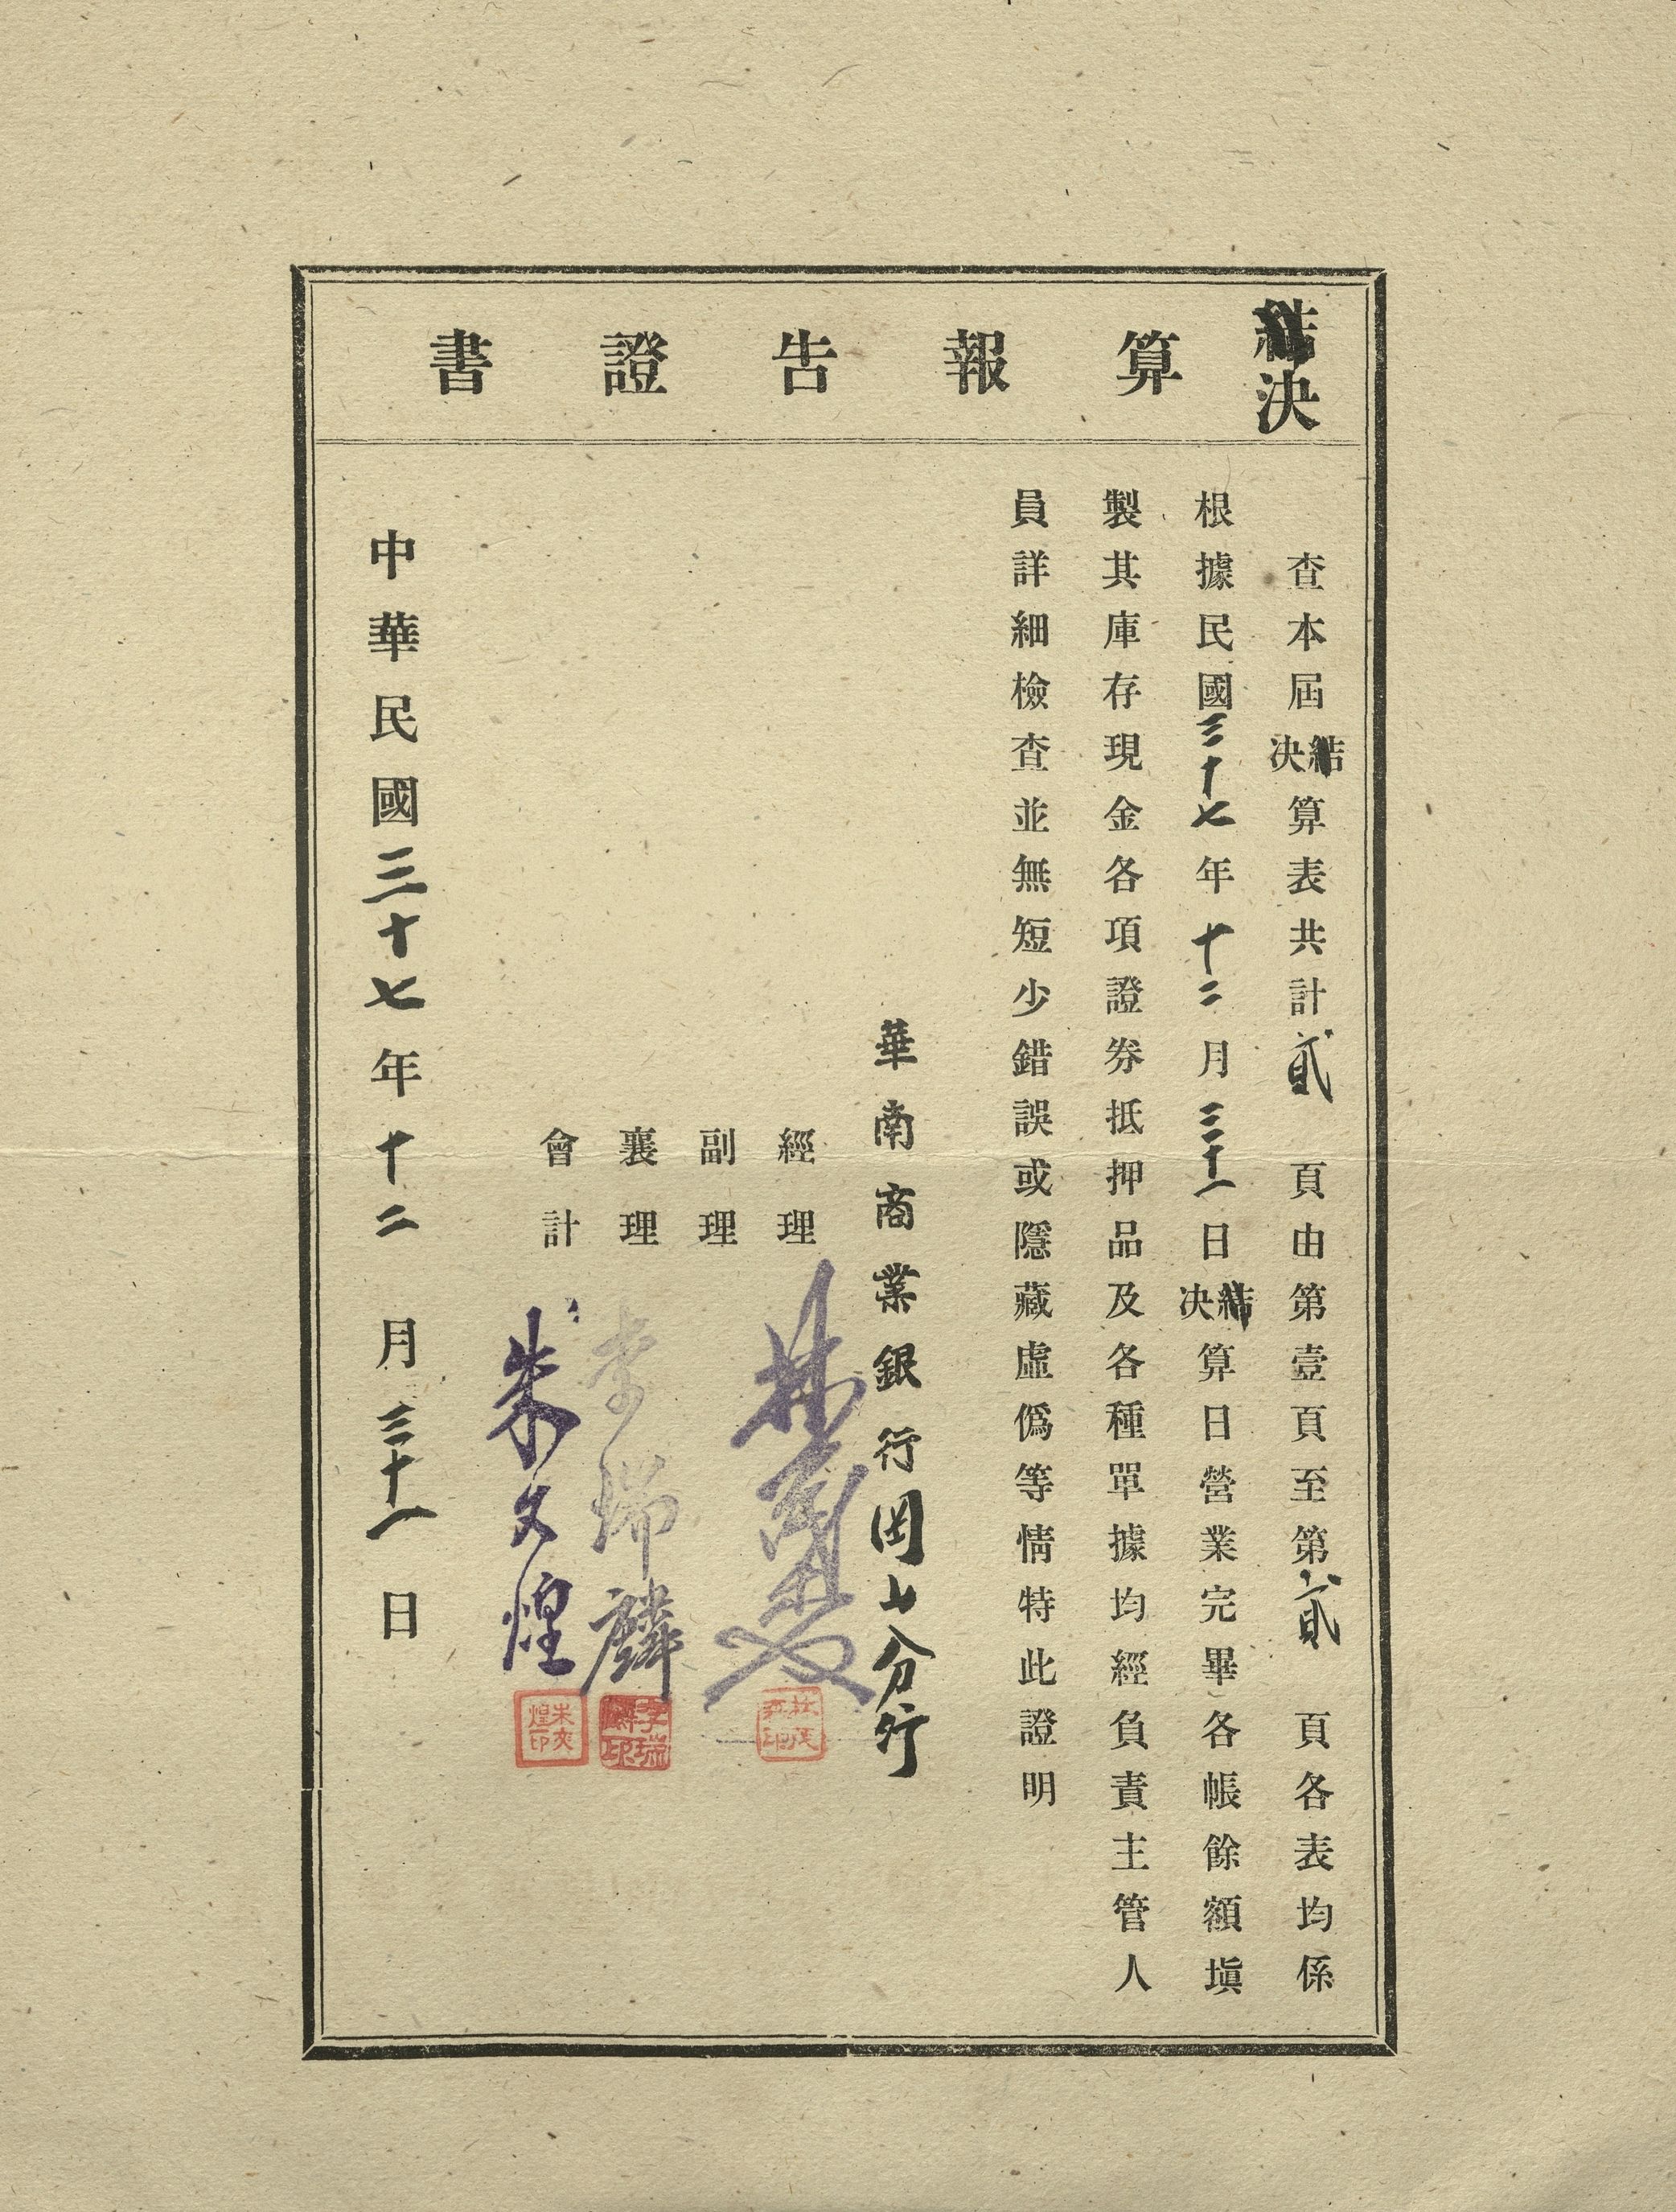 決算報告證書
查本屆決算表共計貳頁由第壹頁至第貳頁各表均係
根據民國三十七年十二月三十一日決算日營業完畢各帳餘額塡
製其庫存現金各項證券抵押品及各種單據均經負責主管人
員詳細檢查並無短少錯誤或隱藏虛僞等情特此證明
華南商業銀行岡山分行
經理 林
副理
襄理 李瑞麟
李瑞麟印
會計 朱文煌
朱文煌印
中華民國三十七年十二月三十一日